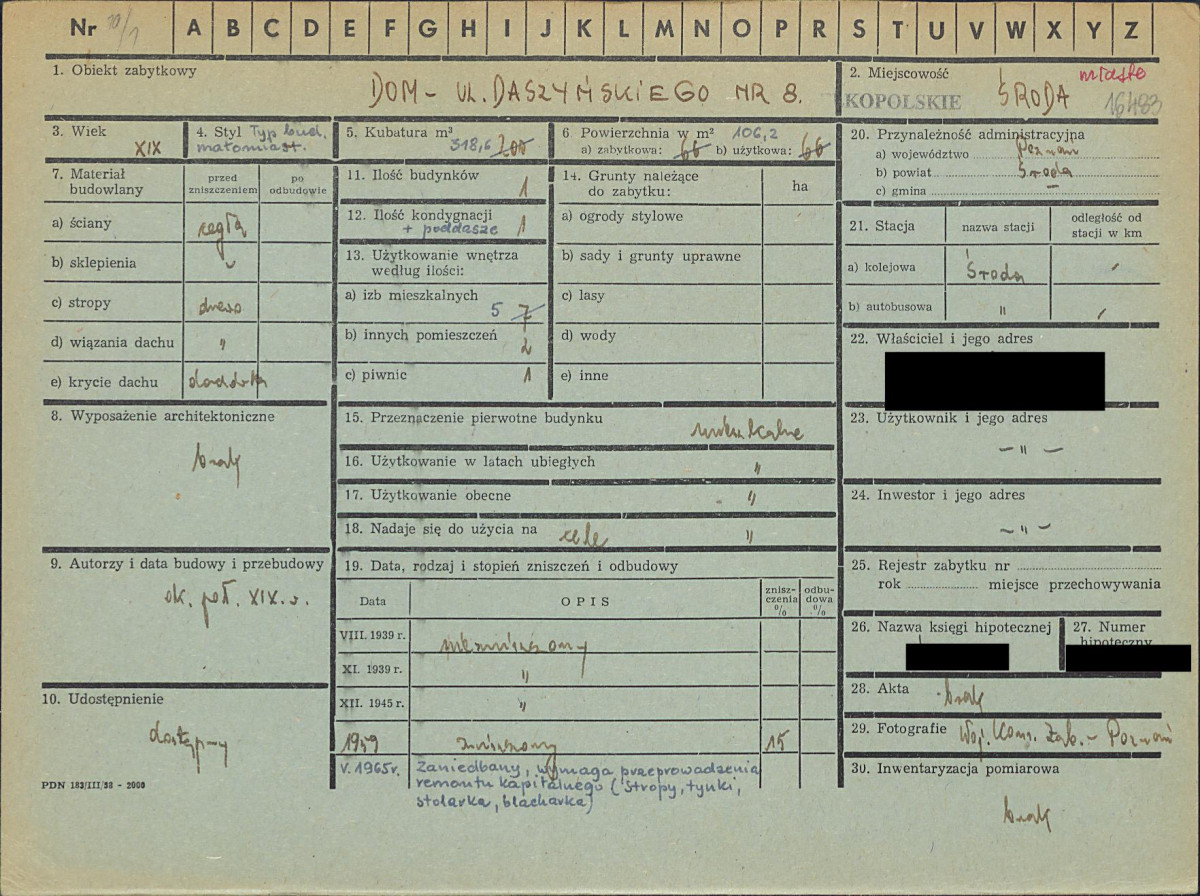 Nr 10/1 A B C D E F G H I J K L M N O P R S T U V W X Y Z
1. Obiekt zabytkowy
DOM - UL. DASZYŃSKIEGO NR 8.
2. Miejscowość
miasto
KOPOLSKIE ŚRODA 16483
3. Wiek
XIX
4. Styl Typ bud.
małomiast.
5. Kubatura m³
318,6 200
6 Powierzchnia w m² 106,2
a) zabytkowa: 66 b) użytkowa: 66
7. Materiał budowlany
przed zniszczeniem
po odbudowie
a) ściany cegła
b) sklepienia
c) stropy drewno
d) wiązania dachu "
e) krycie dachu dachówka
8. Wyposażenie architektoniczne
brak
9. Autorzy i data budowy i przebudowy
ok. poł. XIX w.
10. Udostępnienie
dostępny
PDN 183/III/58 - 2000
11. Ilość budynków 1
12. Ilość kondygnacji
+ poddasze 1
13. Użytkowanie wnętrza
według ilości:
a) izb mieszkalnych
5 7
b) innych pomieszczeń
2
c) piwnic 1
14. Grunty należące
do zabytku:
ha
a) ogrody stylowe
b) sady i grunty uprawne
c) lasy
d) wody
e) inne
15. Przeznaczenie pierwotne budynku
mieszkalne
16. Użytkowanie w latach ubiegłych "
17. Użytkowanie obecne "
18. Nadaje się do użycia na cele "
19. Data, rodzaj i stopień zniszczeń i odbudowy
Data OPIS znisz-czenia % odbu-dowa %
VIII. 1939 r. niezniszczony
XI. 1939 r. "
XII. 1945 r. "
1959 zniszczony 15
V. 1965r. Zaniedbany, wymaga przeprowadzenia
remontu kapitalnego (stropy, tynki,
stolarka, blacharka)
20. Przynależność administracyjna
a) województwo Poznań
b) powiat Środa
c) gmina —
21. Stacja
nazwa stacji
odległość od
stacji w km
a) kolejowa Środa
b) autobusowa "
22. Właściciel i jego adres
23. Użytkownik i jego adres
— " —
24. Inwestor i jego adres
— " —
25. Rejestr zabytku nr
rok miejsce przechowywania
26. Nazwa księgi hipotecznej
27. Numer
hipoteczny
28. Akta brak
29. Fotografie Woj. Kons. Zab. - Poznań
30. Inwentaryzacja pomiarowa
brak